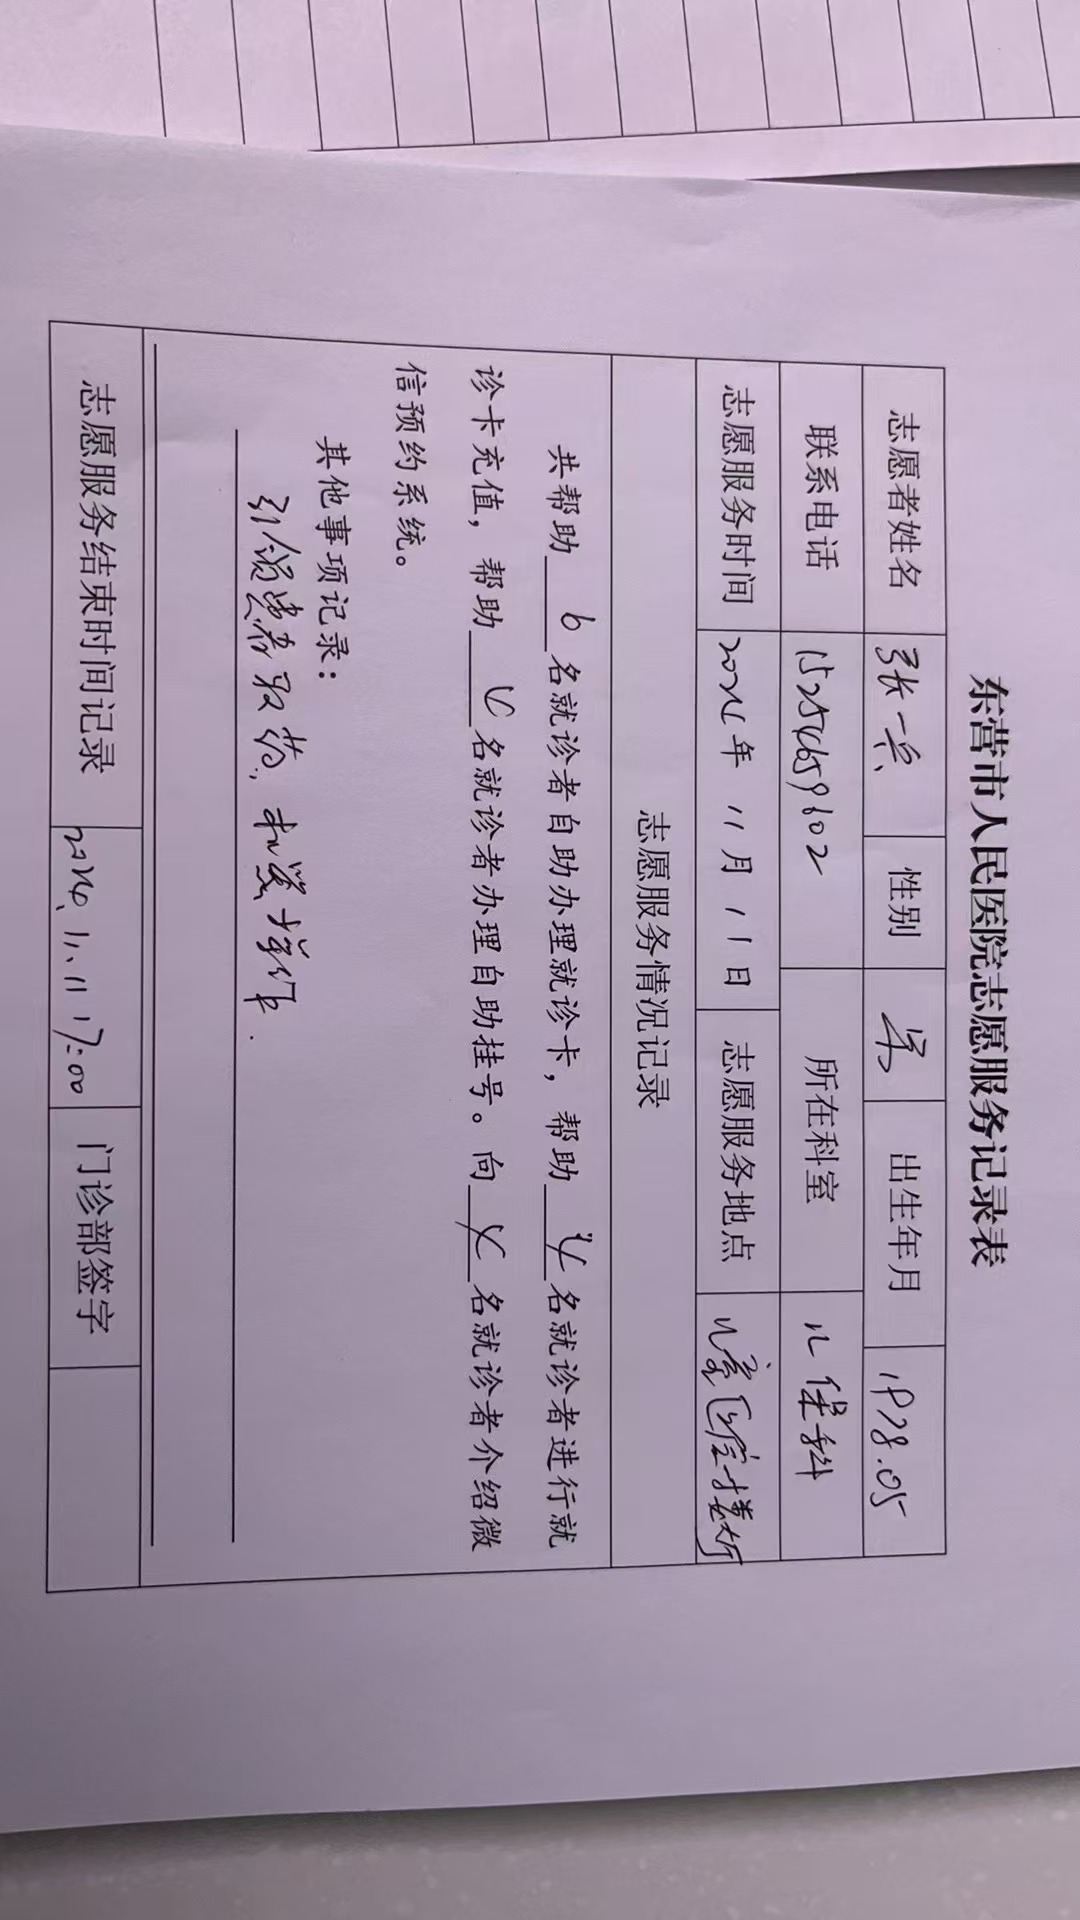 东营市人民医院志愿服务记录表
志愿者姓名 张一兵 性别 女 出生年月 1978.05
联系电话 所在科室 儿保科
志愿服务时间 2024年 11月 11日 志愿服务地点 儿童医院大厅
志愿服务情况记录
共帮助 6 名就诊者自助办理就诊卡，帮助 4 名就诊者进行就
诊卡充值，帮助 6 名就诊者办理自助挂号。向 4 名就诊者介绍微
信预约系统。
其他事项记录：
引领患者取药，
志愿服务结束时间记录 2024.11.11 17:00 门诊部签字